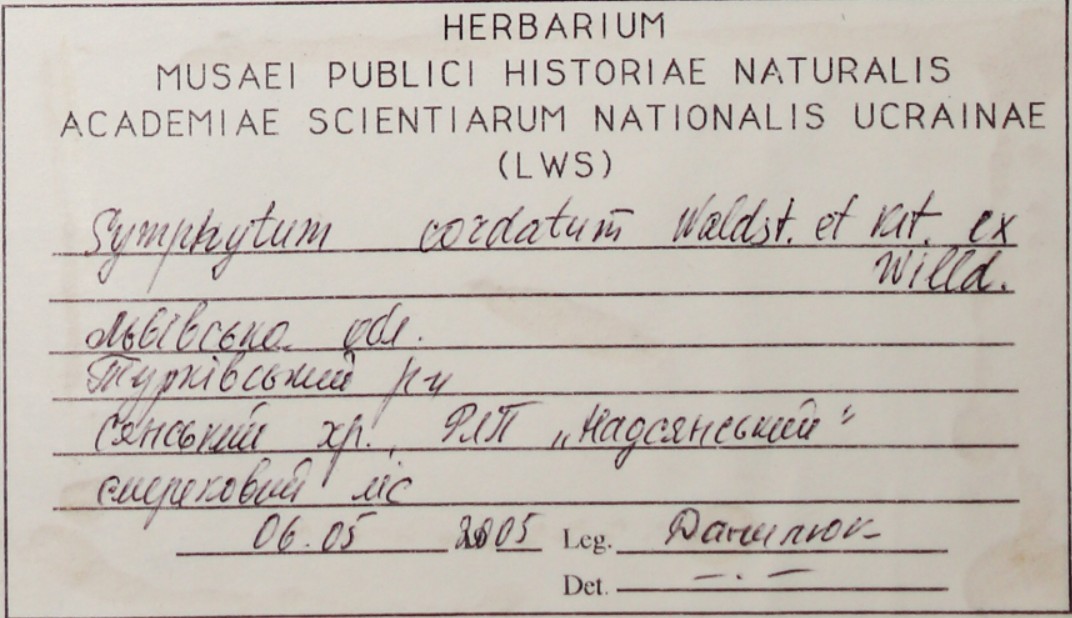 HERBARIUM
MUSAEI PUBLICI HISTORIAE NATURALIS
ACADEMIAE SCIENTIARUM NATIONALIS UCRAINAE
(LWS)
Symphytum cordatum Waldst. et Kit. ex
Willd.
Львівська обл.
Турківський р-н
Сянський хр., РЛП „Надсянський"
смерековий ліс
06.05 2005 Leg. Данилюк
Det. — . —